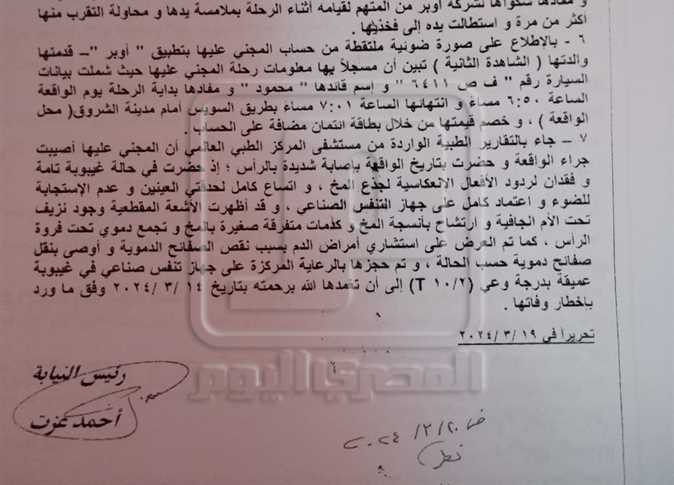 و مفادها شكواها لشركة أوبر من المتهم لقيامه أثناء الرحلة بملامسة يدها و محاولة التقرب منها
أكثر من مرة و استطالت يده إلى فخذيها .
٦ - بالإطلاع على صورة ضوئية ملتقطة من حساب المجني عليها بتطبيق " أوبر " – قدمتها
والدتها ( الشاهدة الثانية ) تبين أن مسجلاً بها معلومات رحلة المجني عليها حيث شملت بيانات
السيارة رقم " ف ص ٦٤١١ " و إسم قائدها " محمود " و مفادها بداية الرحلة يوم الواقعة
الساعة ٦:٥٠ مساءً و انتهائها الساعة ٧:٠١ مساءً بطريق السويس أمام مدينة الشروق( محل
الواقعة ) ، و خصم قيمتها من خلال بطاقة ائتمان مضافة على الحساب .
٧ – جاء بالتقارير الطبية الواردة من مستشفى المركز الطبي العالمي أن المجني عليها أصيبت
جراء الواقعة و حضرت بتاريخ الواقعة بإصابة شديدة بالرأس ؛ إذ حضرت في حالة غيبوبة تامة
و فقدان لردود الأفعال الانعكاسية لجذع المخ ، و اتساع كامل لحدقتي العينين و عدم الإستجابة
للضوء و اعتماد كامل على جهاز التنفس الصناعي ، و قد أظهرت الأشعة المقطعية وجود نزيف
تحت الأم الجافية و ارتشاح بأنسجة المخ و كدمات متفرقة صغيرة بالمخ و تجمع دموي تحت فروة
الرأس ، كما تم العرض على استشاري أمراض الدم بسبب نقص الصفائح الدموية و أوصى بنقل
صفائح دموية حسب الحالة ، و تم حجزها بالرعاية المركزة على جهاز تنفس صناعي في غيبوبة
عميقة بدرجة وعي (T ١٠/٢) إلى أن تغمدها الله برحمته بتاريخ ١٤ /٣ /٢٠٢٤ وفق ما ورد
بإخطار وفاتها .
تحريراً في ١٩ /٣ /٢٠٢٤
٦
رئيس النيابة
أحمد عزت
٢٠٢٤ /٣/٢٠
نظر
المصري اليوم